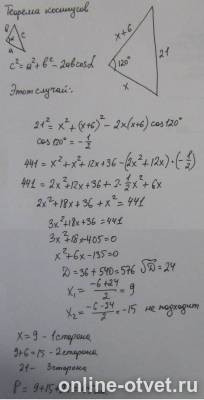 Теорема косинусов
b c
α
a
c² = a² + b² - 2ab cos α
x+6
21
120°
x
Этот случай:
21² = x² + (x+6)² - 2x(x+6) cos 120°
cos 120° = - 1/2
441 = x² + x² + 12x + 36 - (2x² + 12x) · (- 1/2)
441 = 2x² + 12x + 36 + 2 · 1/2 x² + 6x
2x² + 18x + 36 + x² = 441
3x² + 18x + 36 = 441
3x² + 18x - 405 = 0
x² + 6x - 135 = 0
D = 36 + 540 = 576 √D = 24
x₁ = (-6+24)/2 = 9
x₂ = (-6-24)/2 = -15 не подходит
x = 9 - 1 сторона
9+6 = 15 - 2 сторона
21 - 3 сторона
P = 9 + 15 +
online-otvet.ru